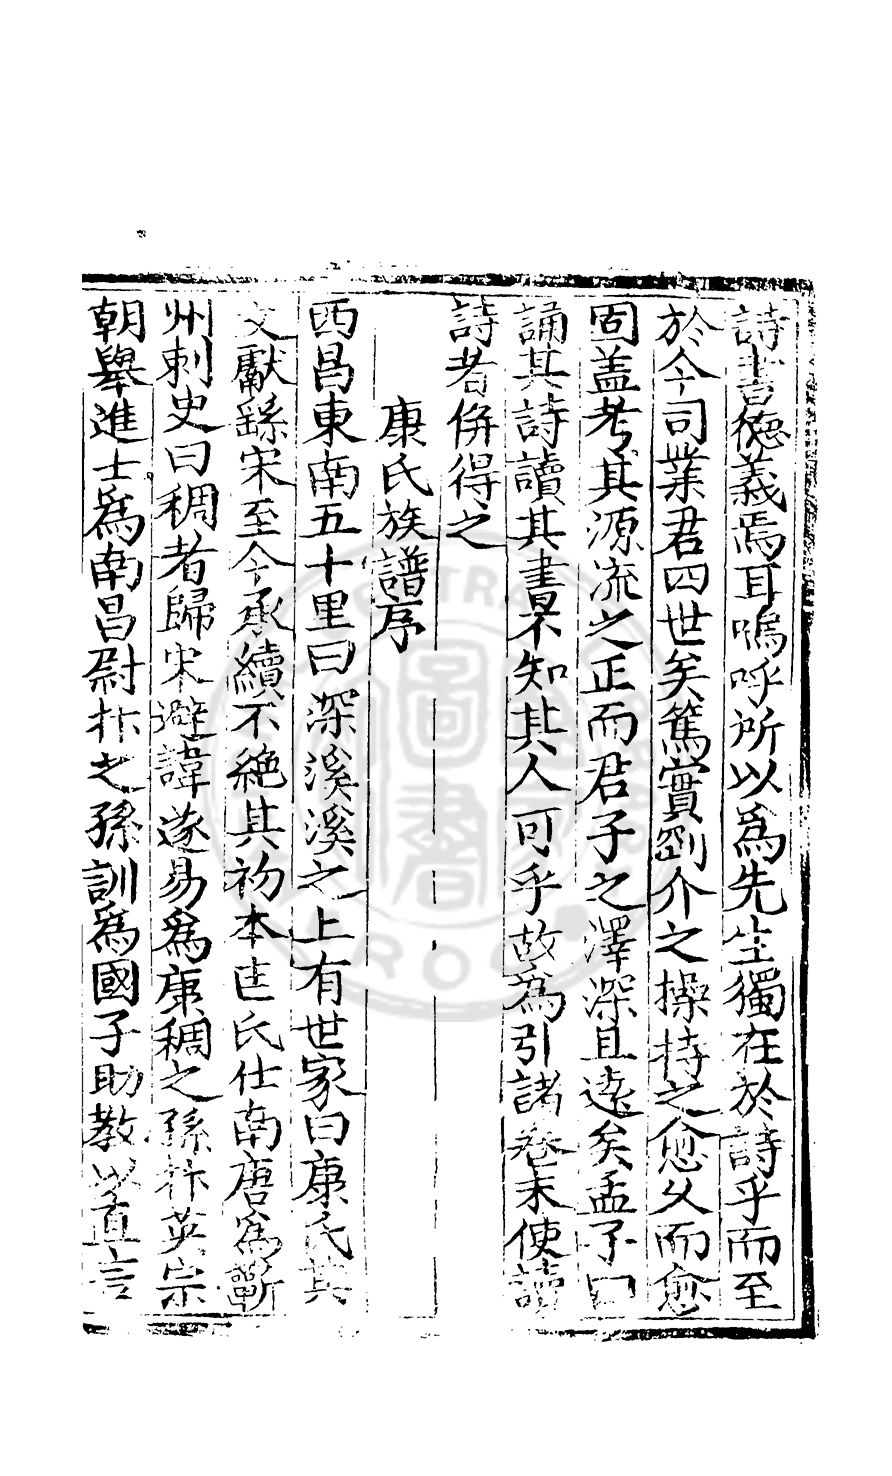 詩書德義焉耳嗚呼所以為先生獨在於詩乎而至
於今司業君四世矣篤實劉介之操持之愈久而愈
固盖考其源流之正而君子之澤深且遠矣孟子曰
誦其詩讀其書不知其人可乎故為引諸卷末使讀
詩者併得之
康氏族譜序
西昌東南五十里曰深溪溪之上有世家曰康氏其
文獻繇宋至今承續不絶其初本匡氏仕南唐為蘄
州刺史曰稠者歸宋避諱遂易為康稠之孫抃英宗
朝舉進士為南昌尉抃之孫訓為國子助教以直言